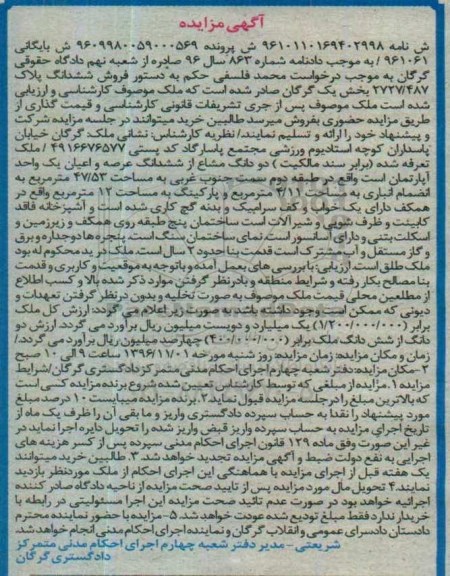 آگهی مزایده
ش نامه ۹۶۱۰۱۱۰۱۶۹۴۰۲۹۹۸ ش پرونده ۹۶۰۹۹۸۰۰۵۹۰۰۰۵۶۹ ش بایگانی
۹۶۱۰۶۱ / به موجب دادنامه شماره ۸۶۳ سال ۹۶ صادره از شعبه نهم دادگاه حقوقی
گرگان به موجب درخواست محمد فلسفی حکم به دستور فروش ششدانگ پلاک
۲۷۲۷/۴۸۷ بخش یک گرگان صادر شده است که ملک موصوف کارشناسی و ارزیابی
شده است ملک موصوف پس از جری تشریفات قانونی کارشناسی و قیمت گذاری از
طریق مزایده حضوری بفروش میرسد طالبین خرید میتوانند در جلسه مزایده شرکت
و پیشنهاد خود را ارائه و تسلیم نمایند./ نظریه کارشناس: نشانی ملک: گرگان خیابان
پاسداران کوچه استادیوم ورزشی مجتمع پاسارگاد کد پستی ۴۹۱۶۶۷۶۵۷۷ / ملک
تعرفه شده (برابر سند مالکیت) دو دانگ مشاع از ششدانگ عرصه و اعیان یک واحد
آپارتمان است واقع در طبقه دوم سمت جنوب غربی به مساحت ۴۷/۵۳ مترمربع به
انضمام انباری به مساحت ۴/۱۱ مترمربع و پارکینگ به مساحت ۱۲ مترمربع واقع در
همکف دارای یک خواب، کف سرامیک و بدنه گچ کاری شده است و آشپزخانه فاقد
کابینت و ظرف شویی و شیرآلات است ساختمان پنج طبقه روی همکف و زیرزمین و
اسکلت بتنی و دارای آسانسور است. نمای ساختمان سنگ است. پنجره ها دوجداره و برق
و گاز مستقل و آب مشترک است قدمت بنا حدود ۲ سال است. مورد خرید محکوم له بود
ملک طلق است. ارزیابی: با بررسی های بعمل آمده و باتوجه به موقعیت و کاربری و قدمت
بنا مصالح بکار رفته و شرایط منطقه و بادرنظر گرفتن موارد ذکر شده بالا و کسب اطلاع
از مطلعین محلی قیمت ملک موصوف به صورت تخلیه و بدون درنظر گرفتن تعهدات و
دیونی که ممکن است وجود داشته باشد، به صورت زیر اعلام می گردد: ارزش کل ملک
برابر (۱/۲۰۰/۰۰۰/۰۰۰) یک میلیارد و دویست میلیون ریال برآورد می گردد. ارزش دو
دانگ از شش دانگ ملک برابر (۴۰۰/۰۰۰/۰۰۰) چهارصد میلیون ریال برآورد می گردد./
زمان و مکان مزایده: زمان مزایده: روز شنبه مورخه ۱۳۹۶/۱۱/۰۱ ساعت ۹ الی ۱۰ صبح
۲- مکان مزایده: دفتر شعبه چهارم اجرای احکام مدنی متمرکز دادگستری گرگان/شرایط
مزایده ۱. مزایده از مبلغی که توسط کارشناس تعیین شده شروع برنده مزایده کسی است
که بالاترین مبلغ را درجلسه مزایده قبول نماید ۲. برنده مزایده میبایست ۱۰ درصد مبلغ
مورد پیشنهاد را نقدا به حساب سپرده دادگستری واریز و ما بقی آن را ظرف یک ماه از
تاریخ اجرای مزایده به حساب سپرده واریز قبض واریز شده را تحویل دایره اجرا نماید در
غیر این صورت وفق ماده ۱۲۹ قانون اجرای احکام مدنی سپرده پس از کسر هزینه های
اجرایی به نفع دولت ضبط و آگهی مزایده تجدید خواهد شد. ۳. طالبین خرید میتوانند
یک هفته قبل از اجرای مزایده با هماهنگی این اجرای احکام از ملک موردنظر بازدید
نمایند ۴. تحویل مال مورد مزایده پس از تایید صحت مزایده از ناحیه دادگاه صادر کننده
اجرائیه خواهد بود در صورت عدم تائید صحت مزایده این اجرا مسئولیتی در رابطه با
خریدار ندارد فقط مبلغ تودیع شده عودت خواهد شد. ۵- مزایده با حضور نماینده محترم
دادستان دادسرای عمومی و انقلاب گرگان و نماینده اجرای احکام مدنی انجام خواهد شد.
شریعتی - مدیر دفتر شعبه چهارم اجرای احکام مدنی متمرکز
دادگستری گرگان